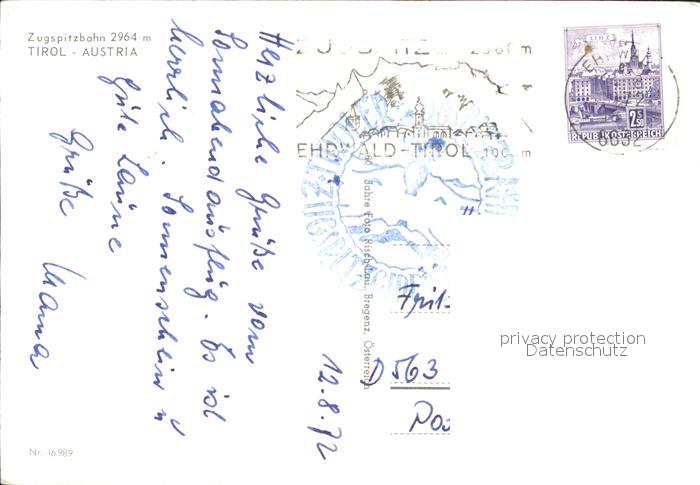 Zugspitzbahn 2964 m
TIROL - AUSTRIA
Herzliche Grüße vom
Sonnabendausflug. Es ist
herrlich. Sonnenschein u
Gute Laune
Grüße
Mama
12.8.72
ZUGSPITZE
EHRWALD-TIROL 1000 m
60 Jahre Foto Risch-Lau, Bregenz, Österreich
LINZ
2.50
REPUBLIK ÖSTERREICH
EHRWALD
6632
TIROLER
Fritz
D 563
privacy protection
Datenschutz
Nr. 16989